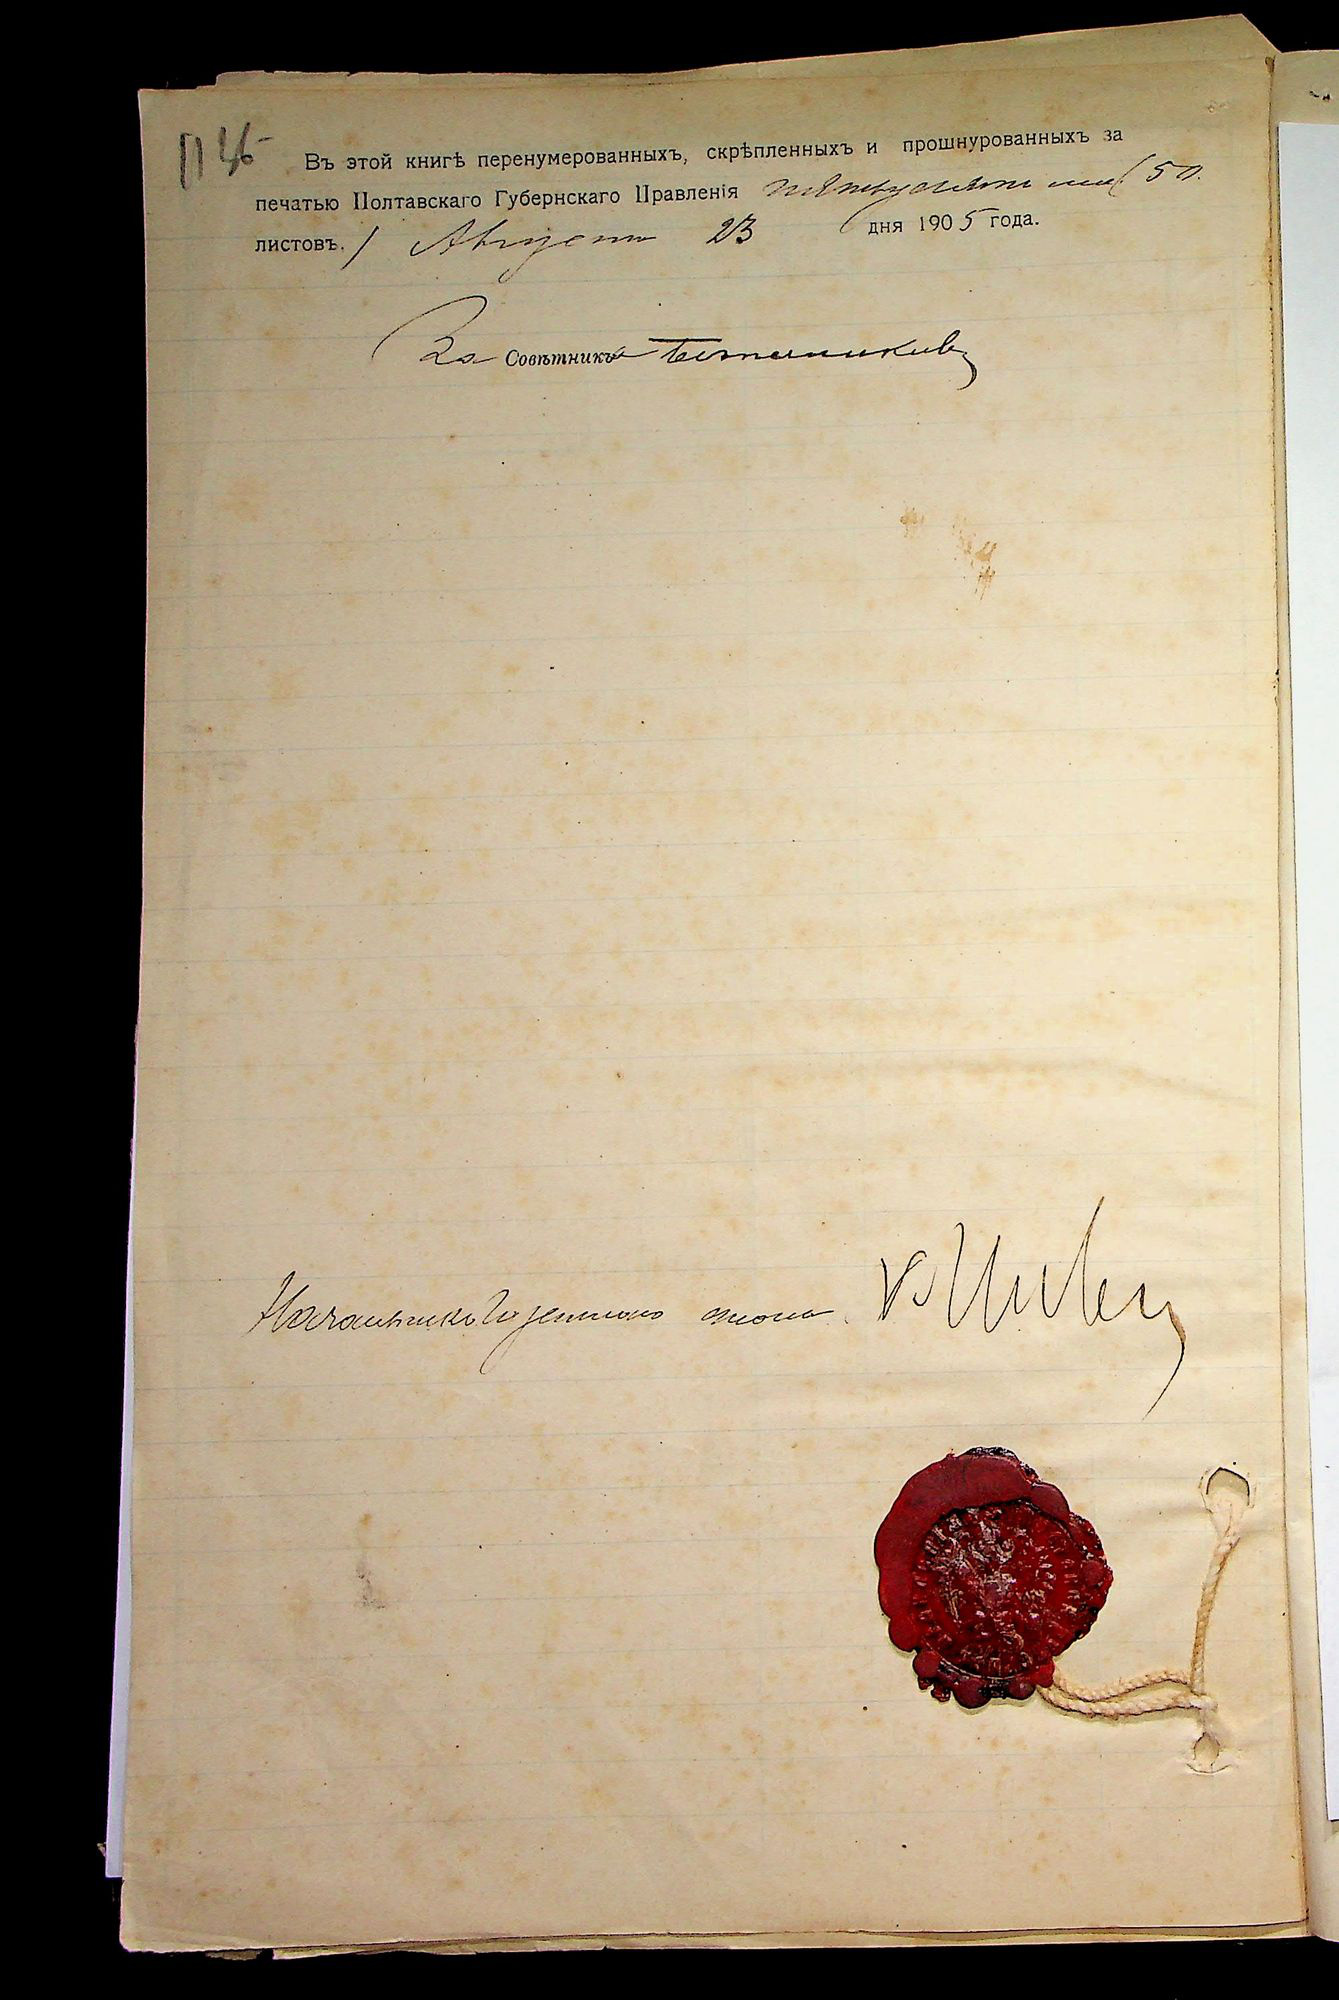 Въ этой книгѣ перенумерованныхъ, скрѣпленныхъ и прошнурованныхъ за
печатью Полтавскаго Губернскаго Правленія пятьдесятъ (50.
листовъ. / Августа 23 дня 1905 года.
За Совѣтника
Начальникъ Газетнаго стола